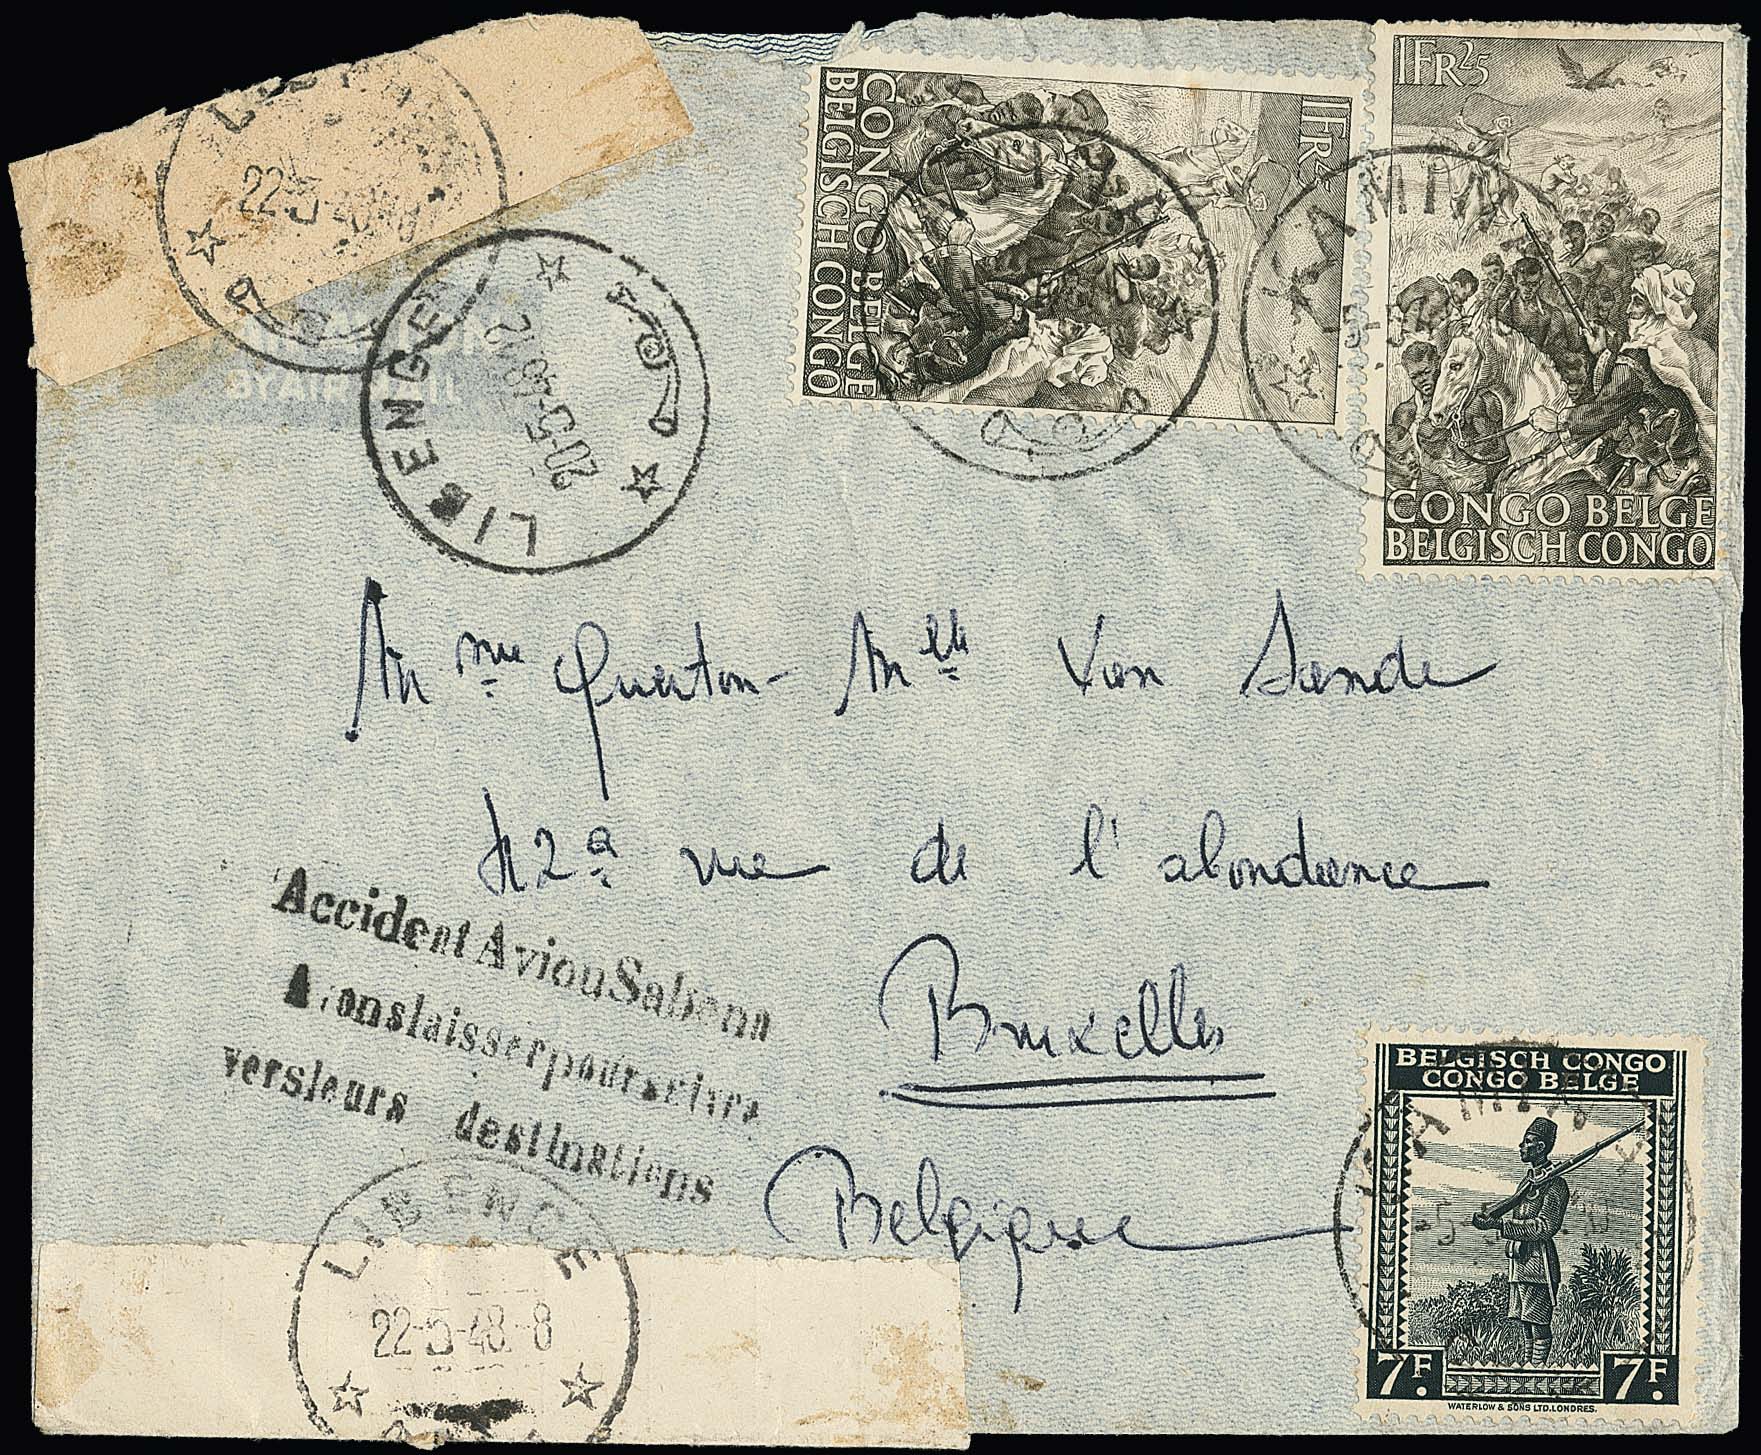 LIBENGE
22-5-48-8
PAR AVION
BY AIR MAIL
LIBENGE
20-5-48-12
1FR25
CONGO BELGE
BELGISCH CONGO
1FR25
CONGO BELGE
BELGISCH CONGO
A Mme Querton - Mlle Van Sande
42a rue de l'abondance
Bruxelles
Belgique
Accident Avion Sabena
A fonslaisserpoursuivre
versleurs destinations
LIBENGE
22-5-48-8
BELGISCH CONGO
CONGO BELGE
7F. 7F.
WATERLOW & SONS LTD. LONDRES.